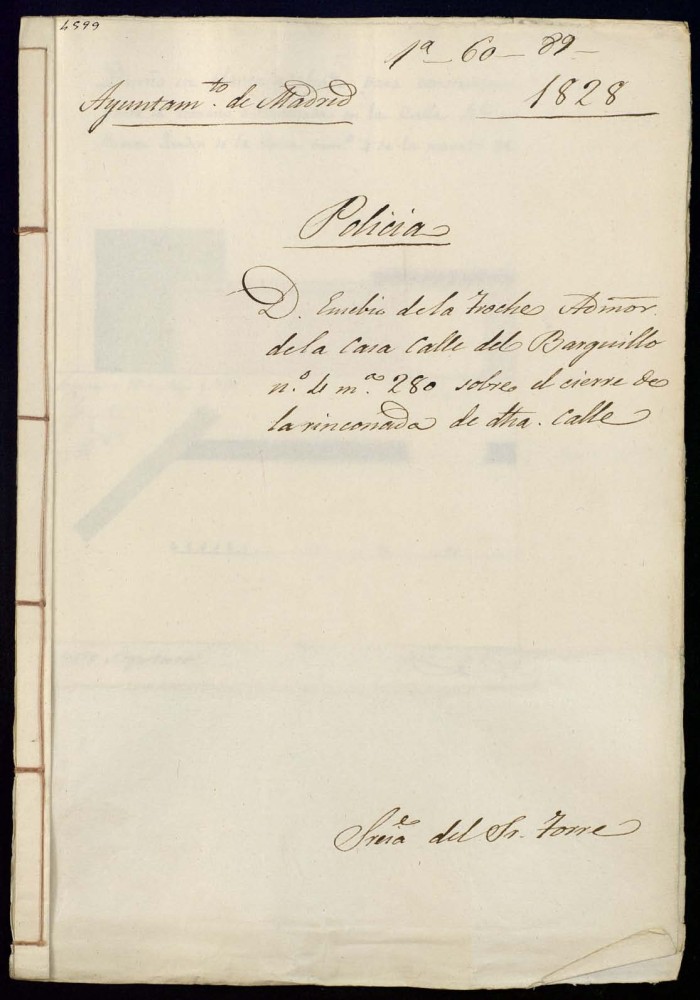 4599
1ª - 60 - 89 -
Ayuntam.to de Madrid
1828
Policia
D. Eusebio de la Troche Admõr.
de la Casa Calle del Barquillo
n.º 4 m.ª 280 sobre el cierre de
la rinconada de dha. Calle
Sreiª del Sr. Torre